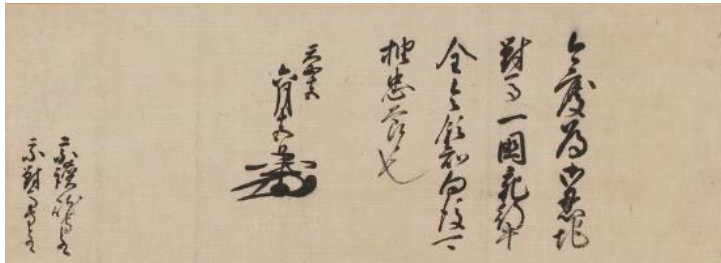 今度為御恩地
對馬一國
全令領知向後可
抽忠節也
天正十五
六月十五日
宗讃岐守とのへ
宗對馬守とのへ